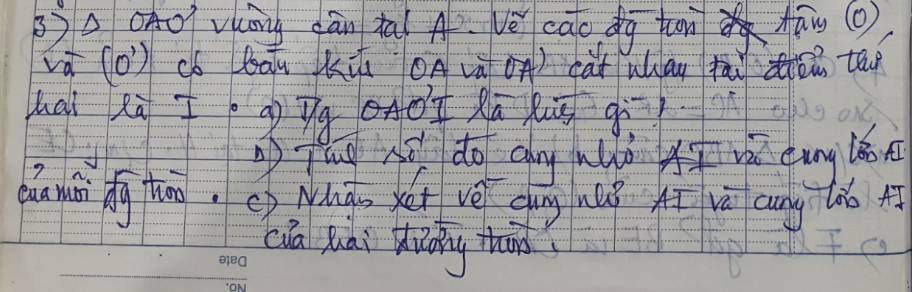 3) Δ OAO' vuông cân tại A. Vẽ các đg tròn tâm (O)
và (O') có bán kín OA và OA' cắt nhau tại điểm thứ
hai là I. a) T/g OAO'I là hình gì?
b) Tính số đo cung nhỏ AI và cung lớn AI
của mỗi đg tròn. c) Nhận xét về cung nhỏ AI và cung lớn AI
của hai đường tròn.
Date
No.